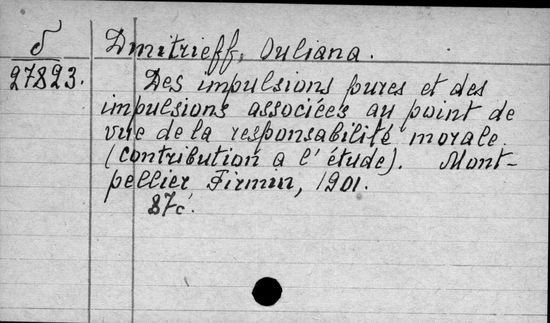 Dmitrieff, Ouliana.
27823.
Des impulsions pures et des
impulsions associées au point de
vue de la responsabilité morale.
(contribution a l'étude). Mont-
pellier Firmin, 1901.
87c.